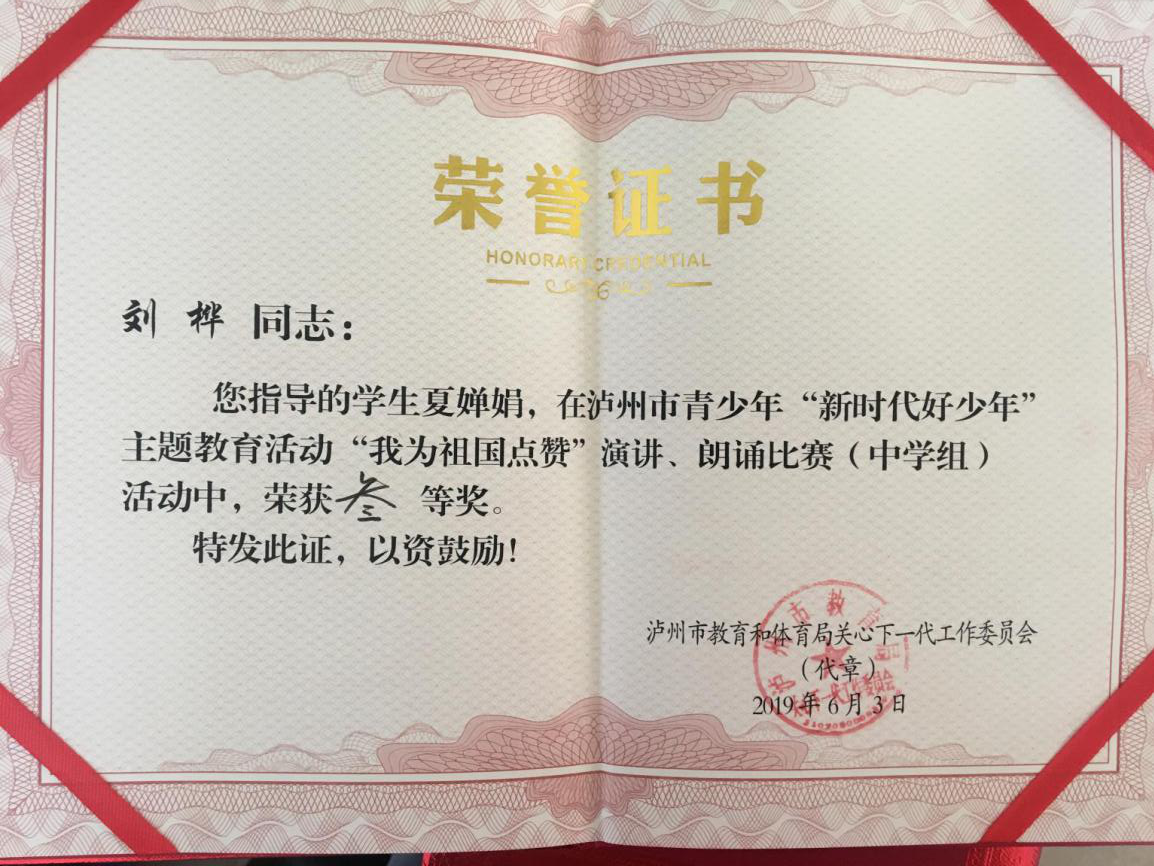 荣誉证书
HONORARY CREDENTIAL
刘 桦 同志：
您指导的学生夏婵娟，在泸州市青少年“新时代好少年”
主题教育活动“我为祖国点赞”演讲、朗诵比赛（中学组）
活动中，荣获叁等奖。
特发此证，以资鼓励！
泸州市教育和体育局关心下一代工作委员会
（代章）
2019年6月3日